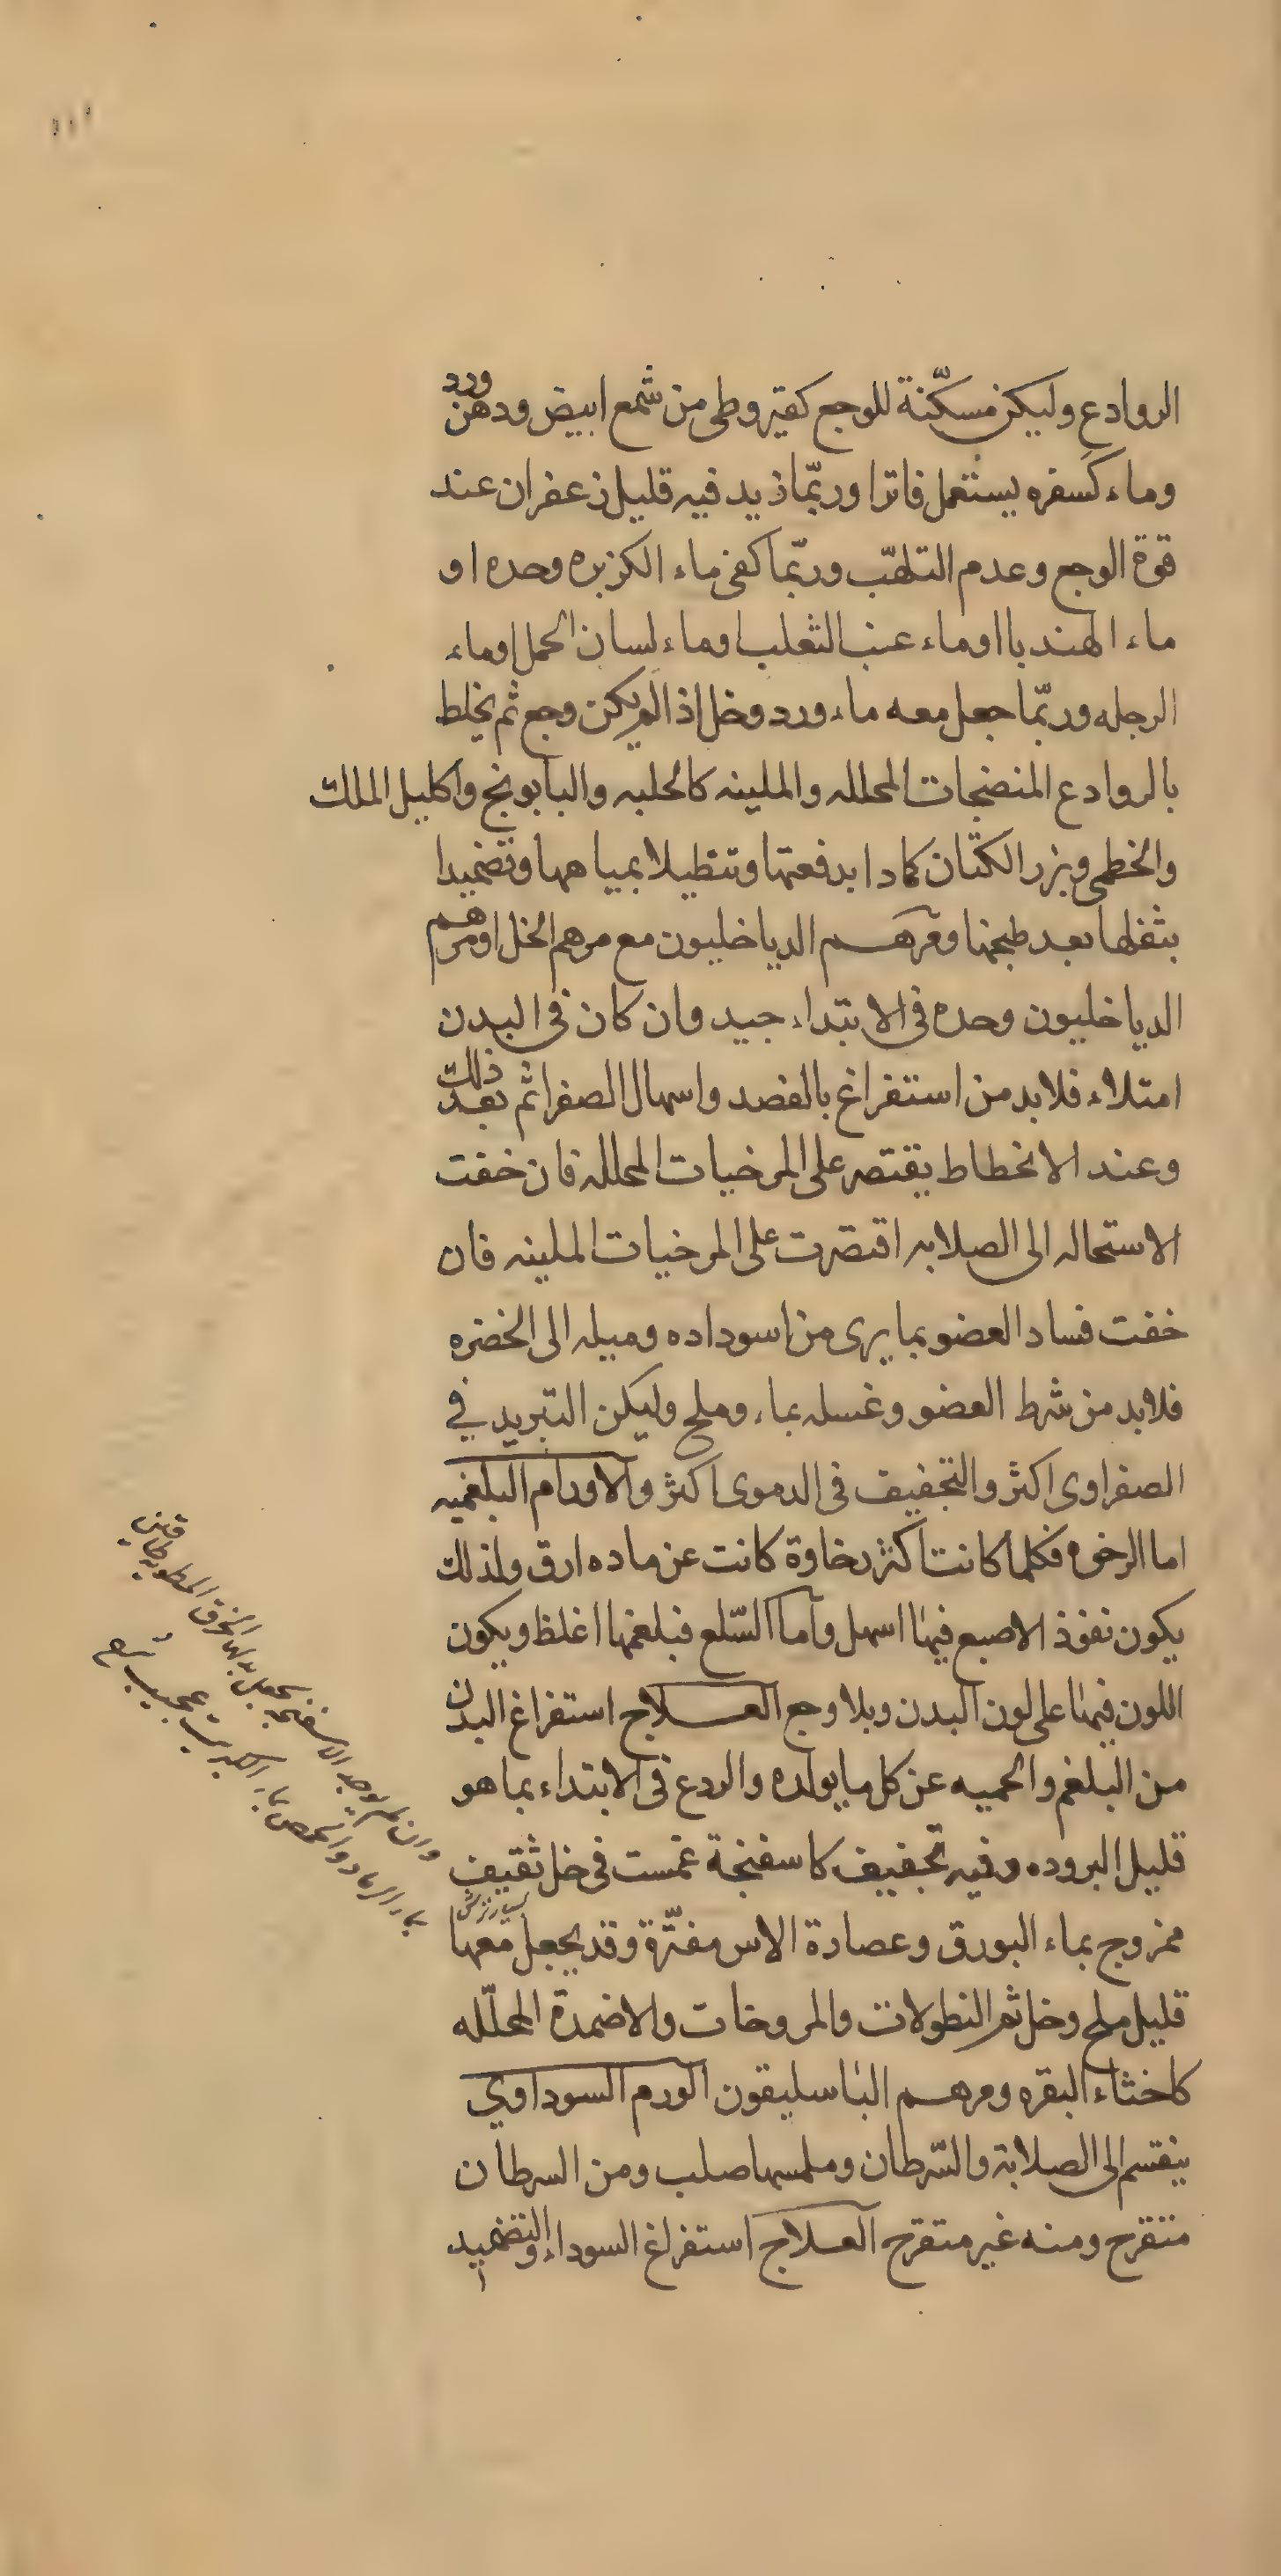 ١١١
الروادع وليكن مسكّنة للوجع كقيروطى من شمع ابيض ودهن ورد
وماء كسفره يستعمل فاترا وربّما زيد فيه قليل زعفران عند
قوة الوجع وعدم التلهّب وربّما كفى ماء الكزبره وحده او
ماء الهندبا او ماء عنب الثعلب وماء لسان الحمل او ماء
الرجله وربّما جعل معه ماء ورد وخل اذا لم يكن وجع ثم يخلط
بالروادع المنضجات المحلله والملينه كالحلبه والبابونج واكليل الملك
والخطمى وبزر الكتان كمادا بدفعتها وتنطيلا بمياهها وتضميدا
بثفلها بعد طبخها ومرهم الدياخليون مع مرهم الخل او مرهم
الدياخليون وحده فى الابتداء جيد وان كان فى البدن
امتلاء فلابد من استفراغ بالفصد واسهال الصفرا ثم بعد ذلك
وعند الانحطاط يقتصر على المرخيات المحلله فان خفت
الاستحاله الى الصلابه اقتصرت على المرخيات الملينه فان
خفت فساد العضو بما يرى من اسوداده وميله الى الخضره
فلابد من شرط العضو وغسله بماء وملح وليكن التبريد في
الصفراوى اكثر والتجفيف فى الدموى اكثر والاورام البلغميه
اما الرخوه فكلما كانت اكثر رخاوة كانت عن ماده ارق ولذلك
يكون نفوذ الاصبع فيها اسهل واما السّلع فبلغمها اغلظ ويكون
اللون فيها على لون البدن وبلا وجع العلاج استفراغ البدن
من البلغم والحميه عن كل ما يولده والردع فى الابتداء بما هو
قليل البروده وفيه تجفيف كاسفنجة غمست فى خل ثقيف
ممزوج بماء البورق وعصارة الاس مفتّرة وقد يجعل معها
قليل ملح وخل ثم النطولات والمروخات والاضمدة المحلّله
كاخثاء البقره ومرهم الباسليقون الورم السوداوي
ينقسم الى الصلابة والسّرطان وملمسها صلب ومن السرطان
متقرح ومنه غير متقرح العلاج استفراغ السوداء والتضميد
وان لم يوجد الاسفنجه يجعل بدلها الخرق المطويه طاقين
بماء الرماد والحمص بماء الكبريت عجيب شرح